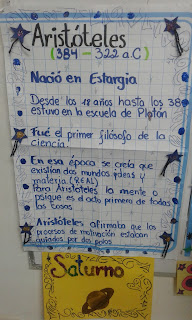 Aristóteles
(384 - 322 a.C)
Nació en Estargia
Desde los 18 años hasta los 38
estuvo en la escuela de Platón
Fué el primer filosofo de
la ciencia.
En esa época se creía que
existían dos mundos ideas y
materia (REAL)
Para Aristóteles la mente o
psique es el acto primero de todas
las cosas.
Aristóteles afirmaba que los
procesos de motivación estaban
guiados por dos polos
Saturno